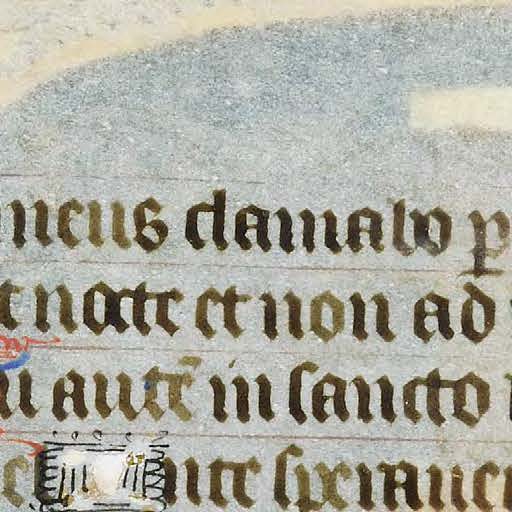 meus clamabo p
t nocte et non ad
autē in sancto
te speraue